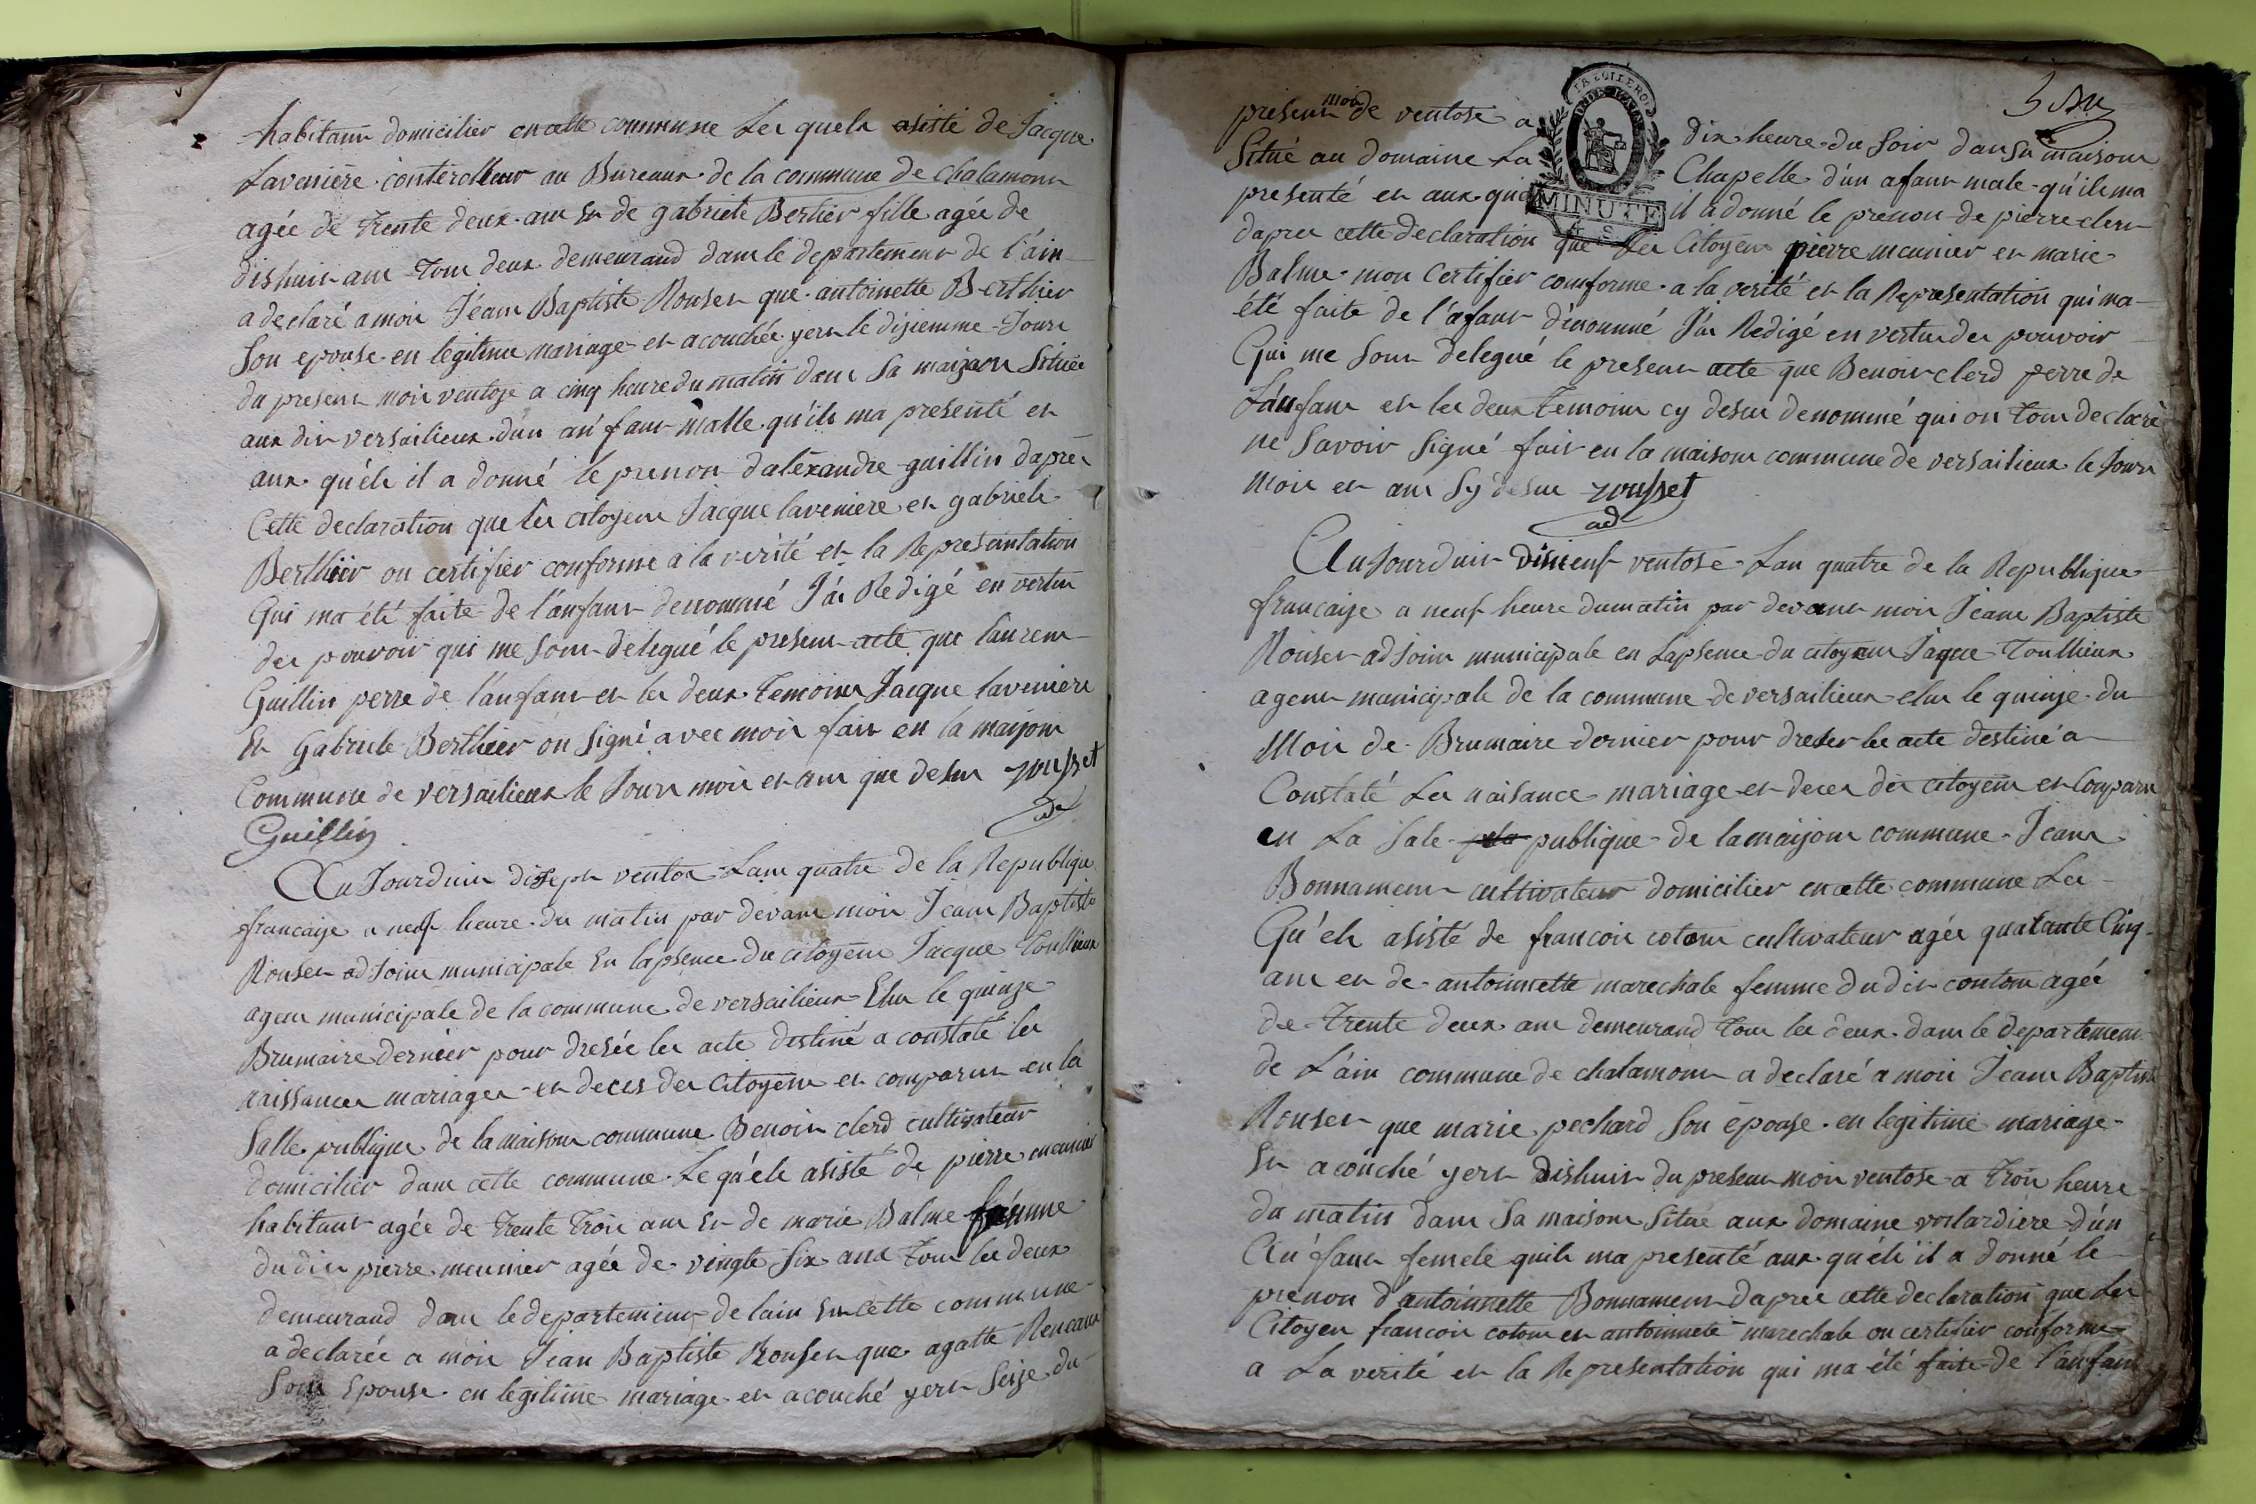 habitant domicilier en cette commune Les quels asisté de Jacque
Laveniere conterolleur au Bureaux de la commune de chalamont
agée de trente deux ans Et de gabriele Berlier fille agée de
dishuit ans tous deux demeurand dans le departement de l'ain
a declaré a moi Jean Baptiste Rouset que antoinette Berthier
Son epouse en legitime mariage et acouchée yert le disiemme Jours
du present mois ventose a cinq heure du matin dans Sa maizon Située
aux dit versailieux d'un an'fant malle qu'ils ma presenté et
aux quéls il a donné le prenon dalèxandre guillin dapres
Cette declaration que les citoyens Jacque laveniere et gabriele
Berthier on certifier conforme a la verité et la Representation
Qui ma été faite de l'anfant denommé J'ai Redigé en vertu
des pouvoir qui me sont delegué le present acte que laurent
Guillin perre de l'anfant et les deux temoins Jacque laveniere
Et Gabriele Berthier on Signé avec moi fait en la maison
Commune de versailieux le Jour mois et ans que desus rousset
ad
Guillin
Au Jourduit disept ventos Lans quatre de la Republique
francaise a neuf heure du matin par devant moi Jean Baptiste
Rouset adjoint municipale En lapsence du citoyent Jacque Toullieux
agent municipale de la commune de versailieux Elus le quinze
Brumaire dernier pour dresée les acte destiné a constaté les
naissances mariages et deces des Citoyens et comparut en la
Salle publique de la maison commune Benoit clerd cultivateur
domicilier dans cette commune Le quéls asisté de pierre meunier
habitant agée de trente trois ans Et de marie Balme femme
du dit pierre meunier agée de vingte six ans tous les deux
demeurand dans le departement de lain En cette commune
a declarée a moi Jean Baptiste Rouset que agatte
Son Epouse en legitime mariage et acouché yert Seize du
5 Du
present mois de ventose a dix heure du Soir dans Sa maison
Situé au domaine La Chapelle d'un afant male qu'ils ma
MINUTE
presenté et aux quels il a donné le prenon de pierre clerd
dapres cette declaration que Les Citoyens pierre meunier et marie
Balme mon Certifier comforme a la verité et la Representation qui ma
été faite de l'afant dénommé J'ai Redigé en vertu des pouvoir
Qui me Sont delegué le present acte que Benoit clerd perre de
L'anfant et les deux temoins cy desus denommé qui on tous declaré
ne Savoir Signé fait en la maison commune de versailieux le Jour
Mois et ans Sy desus rousset
ad
Au Jourduit disneuf ventose Lan quatre de la Republique
francaise a neuf heure dumatin par devant moi Jean Baptiste
Rouset adjoint municipale en Lapsence du citoyens Jaque Toullieux
agent municipale de la commune de versailieux elus le quinze du
Mois de Brumaire dernier pour dreser les acte destiné a
Constaté Les naisance mariage et deces des citoyens et Comparu
en La Sale publique de la maison commune Jean
Bonnament cultivateur domicilier en cette commune Les
Qu'els asisté de francois cotom cultivateur agée quatante Cinq
ans et de antoinnette marechale femme du dit contom agée
de trente deux ans demeurand tous les deux dans le departement
de L'ain commune de chalamont a declaré a moi Jean Baptiste
Rouset que marie pechard Son épouse en legitime mariage
Et acouché yert dishuit du present mois ventose a trois heure
du matin dans Sa maison Situé aux domaine volardiere d'un
An'fant femele quils ma presenté aux quéls il a donné le
prenon d'antoinnette Bonnament dapres cette declaration que Les
Citoyen francois cotom et antoinnete marechale on certifier conforme
a La verité et la Representation qui ma été faite de l'anfant